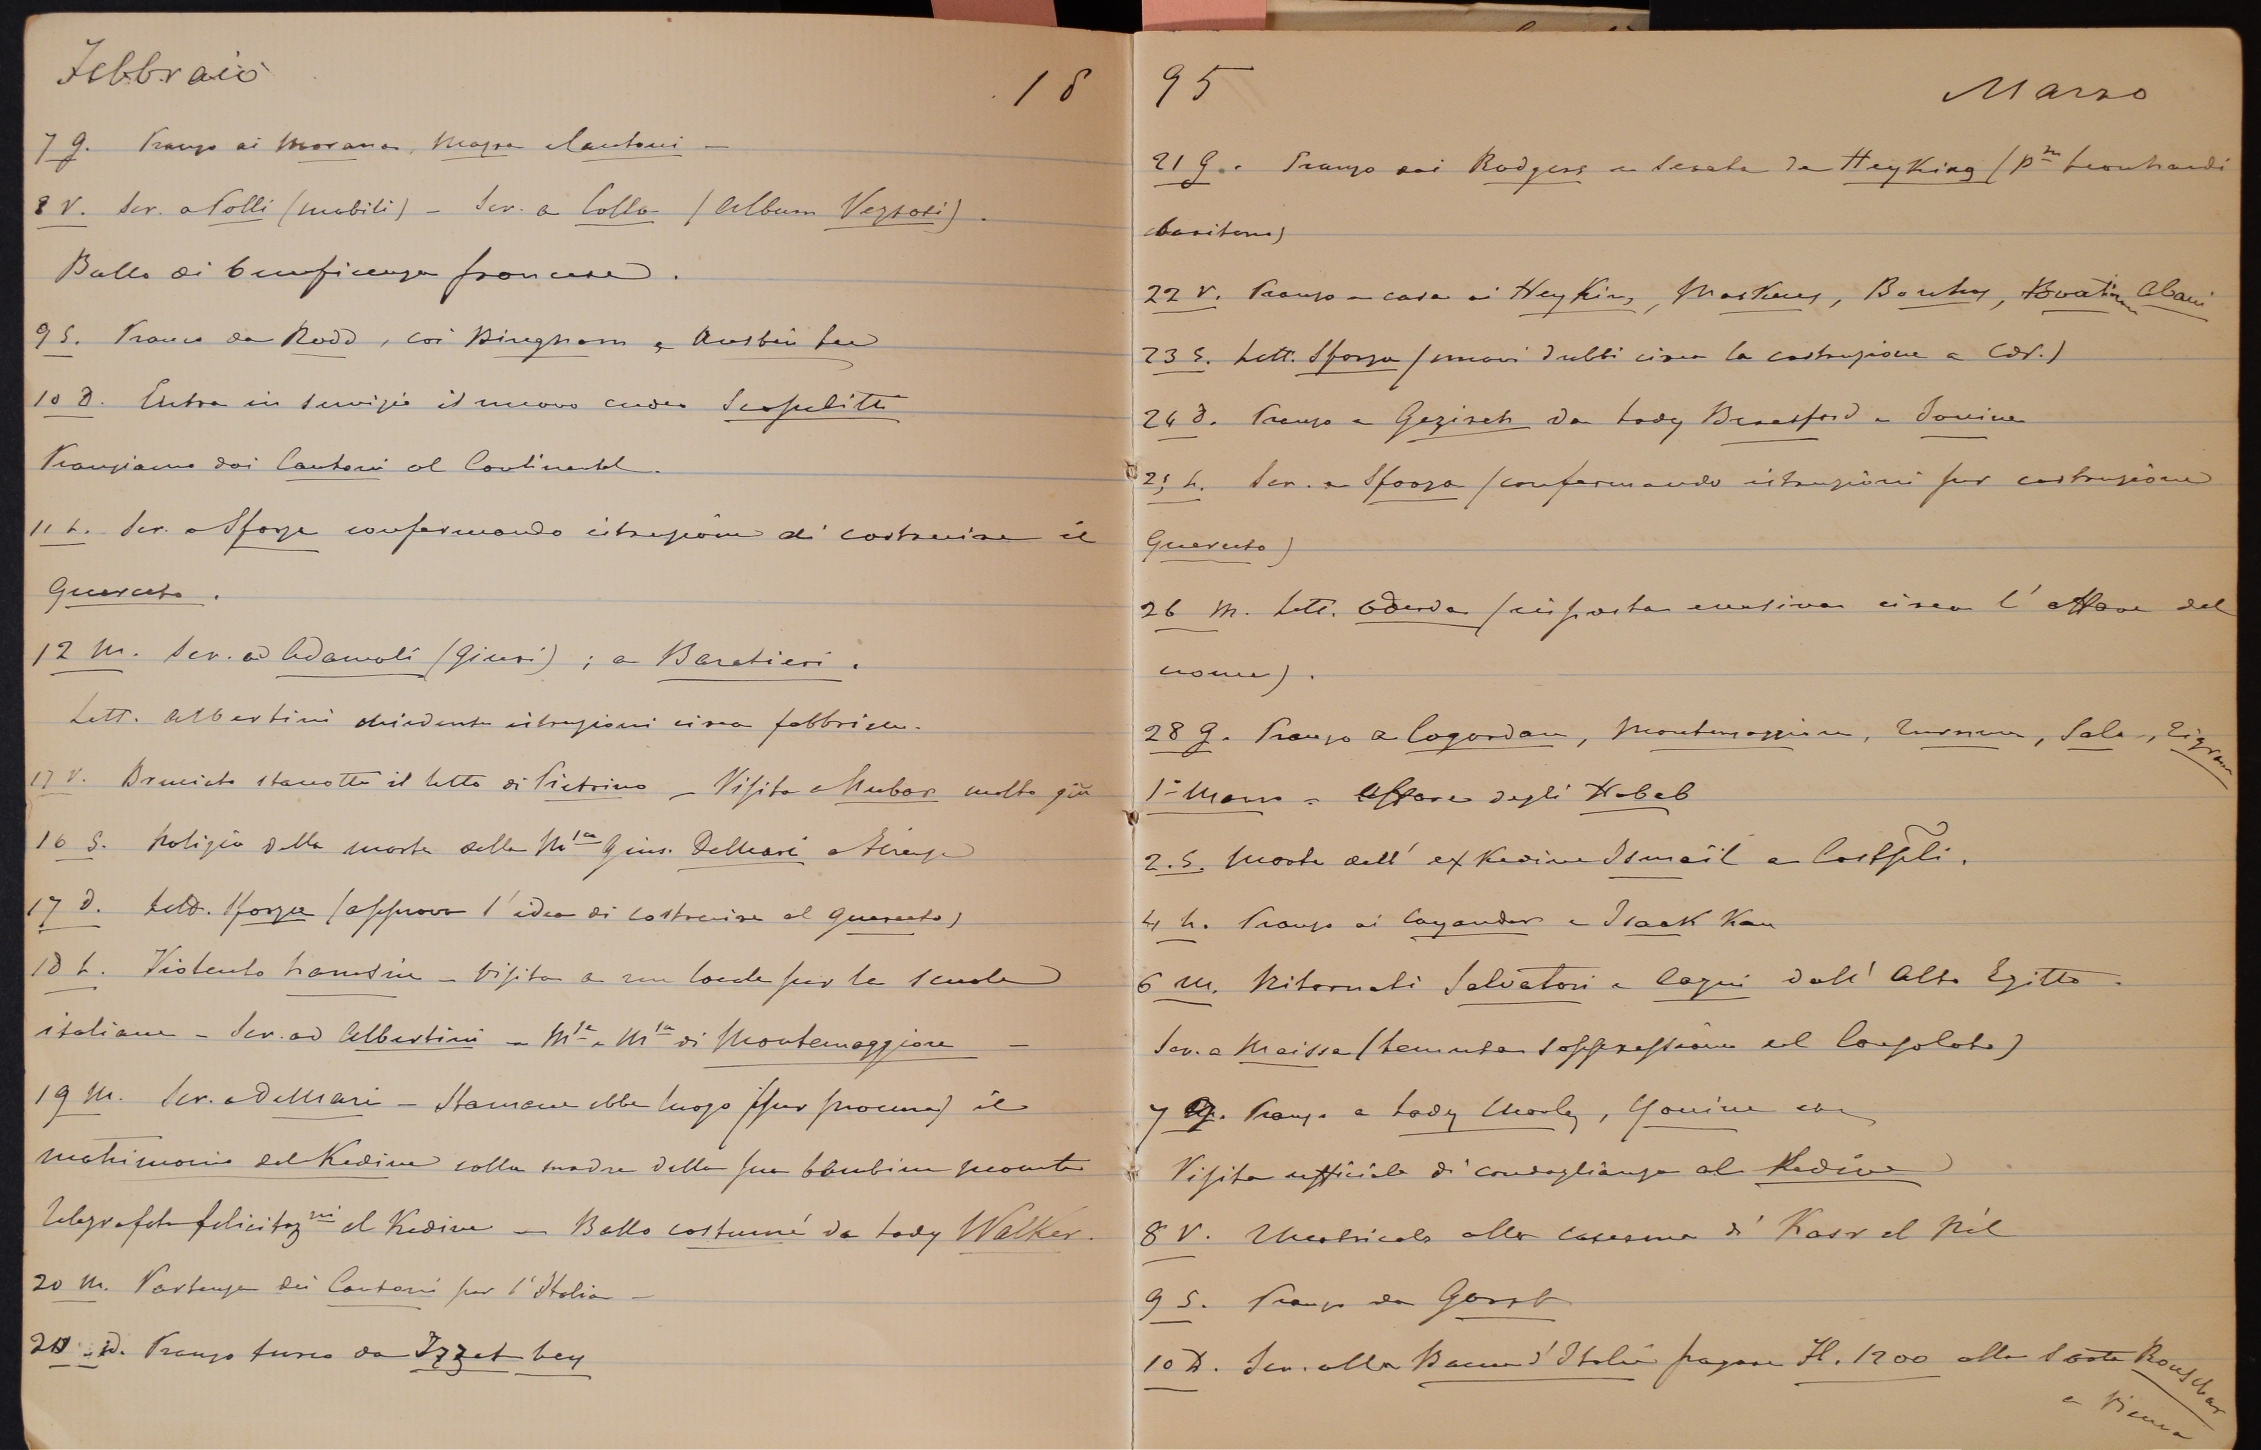 Febbraio
18
7 G. Pranzo ai Morana, Mazza e Cantoni –
8 V. Scr. a Polli (mobili) – Scr. a Colla (Album Vezzosi).
Ballo di beneficenza francese.
9 S. Pranzo da Rodd, coi Bingham e Austin Lee
10 D. Entra in servizio il nuovo cuoco
Pranziamo dai Cantoni al Continental.
11 L. Scr. a Sforza confermando istruzione di costruire il
Querceto.
12 M. Scr. ad Adamoli (Giuri); a Baratieri.
Lett. Albertini chiedente istruzioni circa fabbrica.
V. Bruciato stanotte il letto di Pietrino – Visita a Nubar molto giù
16 S. Notizia della morte della Msa Gius. DeMari a Firenze
17 D. Lett. Sforza (approva l'idea di costruire al Querceto)
18 L. Violento hamsin – Visita a un locale per la scuola
italiana – Scr. ad Albertini – Mse e Msa di Montemaggiore –
19 M. Scr. a DeMari – Stamane ebbe luogo (per procura) il
matrimonio del Kedive colla madre della sua bambina
Telegrafato felicitazni al Kedive – Ballo costumé da Lady Walker.
20 M. Partenza dei Cantoni per l'Italia –
D. Pranzo turco da Izzet bey
95
Marzo
21 G. Pranzo dai Rodgers e serata da Heyking (Pm Leonhardi
baritono)
22 V. Pranzo a casa ai Heyking, Maskens, Abani
23 S. Lett. Sforza (nuovi dubbi circa la costruzione a
24 D. Pranzo a Gezireh da Lady Beresford e Jonine
25 L. Scr. a Sforza (confermando istruzioni per costruzione
Querceto)
26 M. Lett. (risposta evasiva circa l'affare del
nome).
28 G. Pranzo a Cogordan, Montemaggiore, Sala, Tigrane
1º Marzo – Affare degli Habab
2. S. Morte dell' ex Kedive Ismaïl a Costpli.
4 L. Pranzo ai e Isaak Kan
6 M. Ritornati Salvatori e Cagni dall' Alto Egitto.
Scr. a Maissa (temuta soppressione del Consolato)
7 G. Pranzo a Lady Morley, Jonine ecc
Visita ufficiale di condoglianza al Kedive
8 V. alla caserma di Kasr el Nil
9 S. Pranzo da Gorst
10 D. Scr. alla Banca d'Italia pagare Fl. 1200 alla
a Vienna